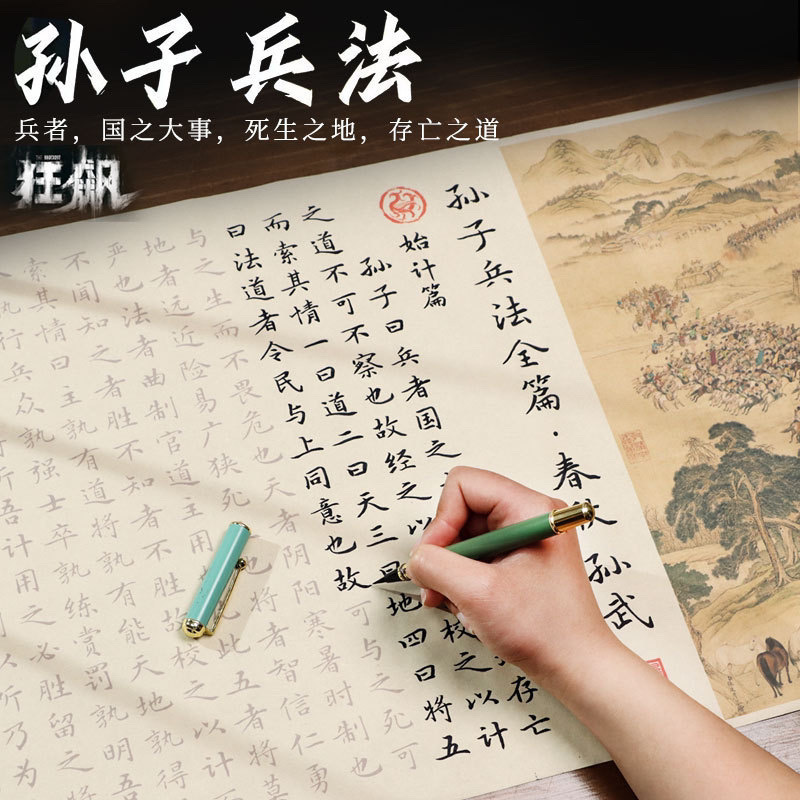 孙子兵法
兵者，国之大事，死生之地，存亡之道
狂飙
孙子兵法全篇·春秋 孙武
始计篇
孙子曰兵者国之 存亡
之道不可不察也故经之以 校之以计
而索其情一曰道二曰天三曰地四曰将五
曰法道者令民与上同意也故可与之死可
与之生而不畏危也天者阴阳寒暑时制也
地者远近险易广狭死 将者智信仁勇
严也法者曲制官道主用 此五者将莫
不闻知之者胜不知者不胜故校之以计
索其情曰主孰有道将孰有能天地孰得
行兵众孰强士卒孰练赏罚孰明吾
吾计用之必胜留之